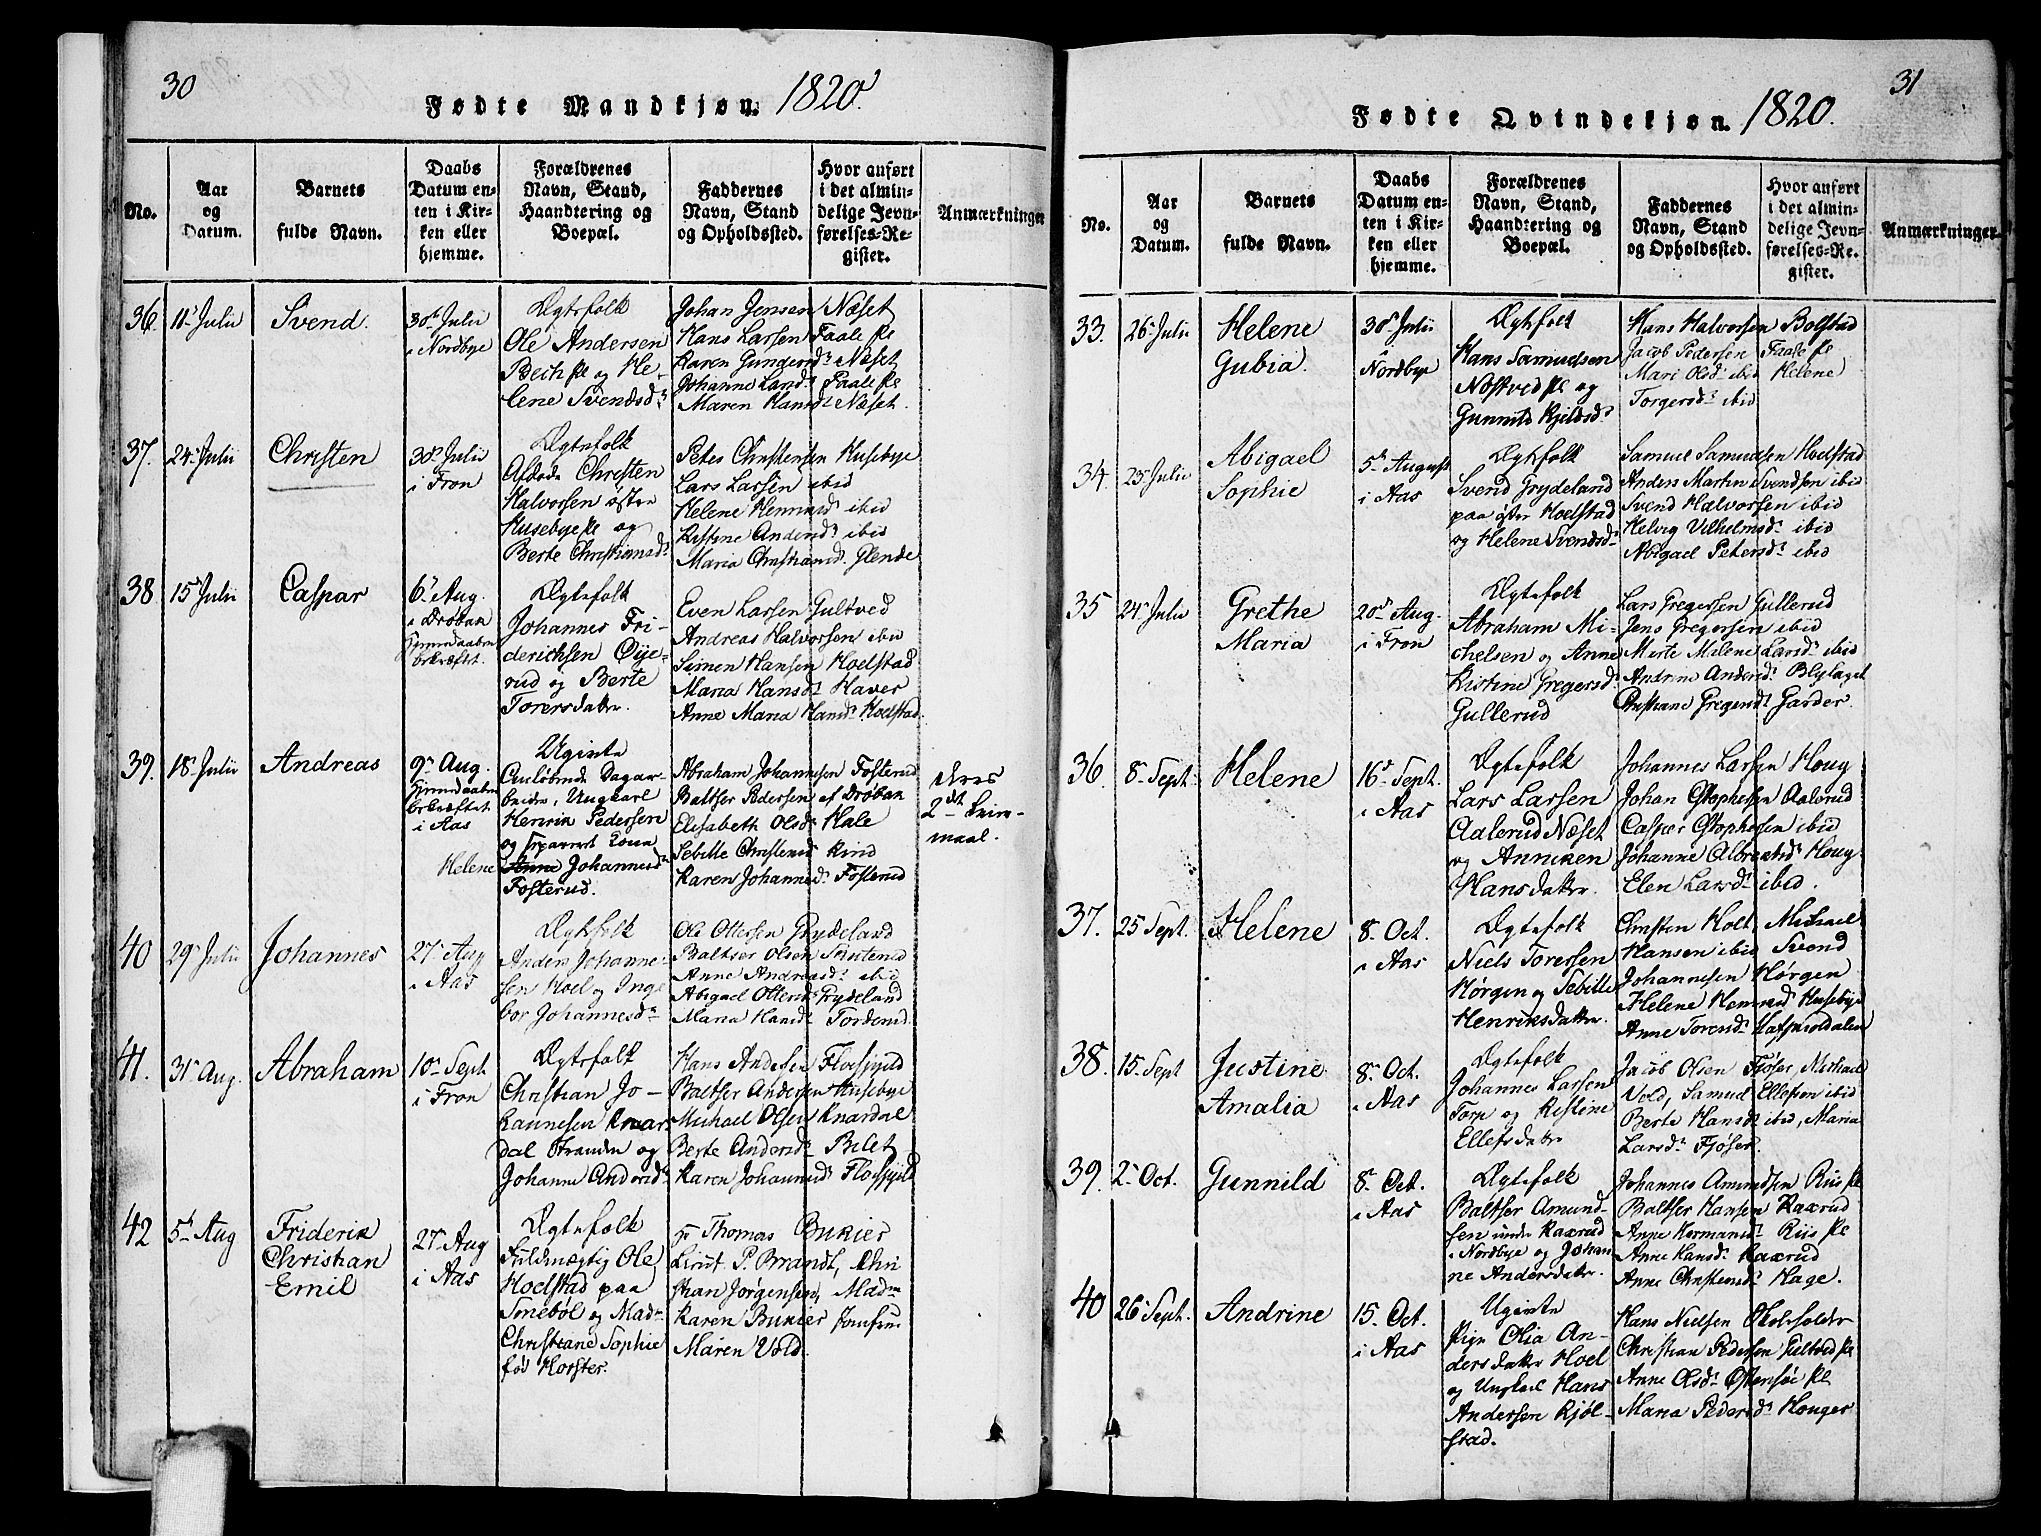 30
Fødte Mandkjøn. 1820.
No.
Aar
og
Datum.
Barnets
fulde Navn.
Daabs
Datum en-
ten i Kir-
ken eller
hjemme.
Forældrenes
Navn, Stand,
Haandtering og
Boepæl.
Faddernes
Navn, Stand
og Opholdssted.
Hvor anført
i det almin-
delige Jevn-
førelses-Re-
gister.
Anmærkninger
36.
11 Julii
Svend.
30 Julii
i Nordbye
Ægtefolk
Ole Andersen
Bech pl og He-
lene Svendsd.
Johan Jensen Næset
Hans Larsen Faale pl
Karen Gundersd. Næset
Johanne Larsd. Faale pl
Maren Hansd. Næset.
37.
24 Julii
Christen
30 Julii
i Fron
Ægtefolk
Afdøde Christen
Halvorsen øster
Husebye pl og
Berte Christiansd.
Peter Christensen Husebye
Lars Larsen ibid
Helene Henriksd. ibid
Kistine Andersd. ibid
Maria Christiansd. Glende
38
15 Julii
Caspar
6 Aug.
i Drøbak
Hjemmedaaben
bekræftet.
Ægtefolk
Johannes Fri-
derichsen Øije-
rud og Berte
Torersdatter.
Even Larsen Gultved
Andreas Halvorsen ibid
Simen Hansen Hoelstad
Maria Hansd. Haver
Anne Maria Hansd. Hoelstad.
39.
18 Julii
Andreas
9 Aug.
Hjemmedaaben
bekræftet.
i Aas
Ugivte
Dagar-
beider, Ungkarl
Henrik Pedersen
og separert Kona
Helene Anne Johannesd.
Fosterud.
Abraham Johannesen Fosterud
Baltser Pedersen af Drøbak
Elisabeth Olsd. Hale
Sebille Christensd. Kind
Karen Johannesd. Fosterud
deres
2det Leier-
maal.
40
29 Julii
Johannes
27 Aug
i Aas
Ægtefolk
Anders Johanne-
sen Hoel og Inge
bor Johannesd.
Ole Ottersen Grydeland
Baltser Olsen Skuterud
Anne Andreasd. ibid
Abigael Ottersd. Grydeland
Maria Hansd. Torderud
41.
31 Aug.
Abraham
10 Sept
i Fron
Ægtefolk
Christian Jo-
hannesen Knar-
dal Stranden og
Johanne Andersd.
Hans Andersen Floespjeld
Baltser Andersen Husebye
Michael Olsen Knardal
Berte Andersd. Bilet
Karen Johannesd. Floespjeld
42
5 Aug
Friderik
Christian
Emil
27 Aug
i Aas
Ægtefolk
Fuldmægtig Ole
Hoelstad paa
Smebøl og Mad.
Christiane Sophie
fød Horster.
Hr Thomas Bukier
Lieut. P. Brandt, Chri
stian Jørgensen, Madm
Karen Bukier Jomfru
Maren Vold.
31
Fødte Qvindekjøn. 1820.
No.
Aar
og
Datum.
Barnets
fulde Navn.
Daabs
Datum en-
ten i Kir-
ken eller
hjemme.
Forældrenes
Navn, Stand,
Haandtering og
Boepæl.
Faddernes
Navn, Stand
og Opholdssted.
Hvor anført
i det almin-
delige Jevn-
førelses-Re-
gister.
Anmærkninger.
33.
26 Julii
Helene
Gubia.
30 Julii
i
Nordbye
Ægtefolk
Hans Samuelsen
Næstved pl og
Gunnild Kjeldsd.
Hans Halvorsen Bølstad
Jacob Pedersen Faale pl
Mari Olsd. ibid Helene
Torgersd. ibid
34.
23 Julii
Abigael
Sophie
5 August
i Aas
Ægtefolk
Svend Grydeland
paa øster Hoelstad
og Helene Svendsd.
Samuel Samuelsen Hoelstad
Anders Martin Svendsen ibid
Svend Halvorsen ibid
Helvig Vilhelmsd. ibid
Abigael Petersd. ibid
35
24 Julii
Grethe
Maria
20 Aug.
i Fron
Ægtefolk
Abraham Mi-
chelsen og Anne
Kistine Gregersd.
Gullerud
Lars Gregersen Gullerud
Jens Gregersen ibid
Merte Malene Larsd. ibid
Andrine Andersd. Blylaget
Christiane Gregersd. Garder.
36
8 Sept.
Helene
16 Sept.
i Aas
Ægtefolk
Lars Larsen
Aalerud Næset
og Anniken
Hansdatter.
Johannes Larsen Houg
Johan Cstophersen Aalerud
Casper Cstophersen ibid
Johanne Albretsd. Houg
Elen Larsd. ibid.
37.
25 Sept.
Helene
8 Oct.
i Aas
Ægtefolk
Niels Toresen
Hørgen og Sebille
Henriksdatter.
Christen Holt, Michael
Hansen ibid Svend
Johannesen Hørgen
Helene Henriksd. Husebye
Anne Toresd.
38.
15 Sept
Justine
Amalia
8 Oct.
i Aas
Ægtefolk
Johannes Larsen
Torp og Kistine
Ellefsdatter
Jacob Olsen Fjøser, Michael
Vold, Samuel Ellefsen ibid
Berte Hansd. ibid, Maria
Larsd. Fjøser.
39.
2 Oct.
Gunnild
8 Oct.
i Aas
Ægtefolk
Baltser Amund-
sen under Kaxrud
i Nordbye og Johan
ne Andersdatter.
Johannes Amundsen Riis pl
Baltser Hansen Kaxrud
Anne Hermansd. Riis pl
Anne Hansd. Kaxrud
Anne Christensd. Hage.
40
26 Sept.
Andrine
15 Oct.
i Aas
Ugivte
Pige Olia An-
dersdatter Hoel
og Ungkarl Hans
Andersen Kjøl-
stad.
Hans Nielsen
Christian Pedersen Gultved pl
Anne Olsd. Østensøe pl
Maria Pedersd. Houger